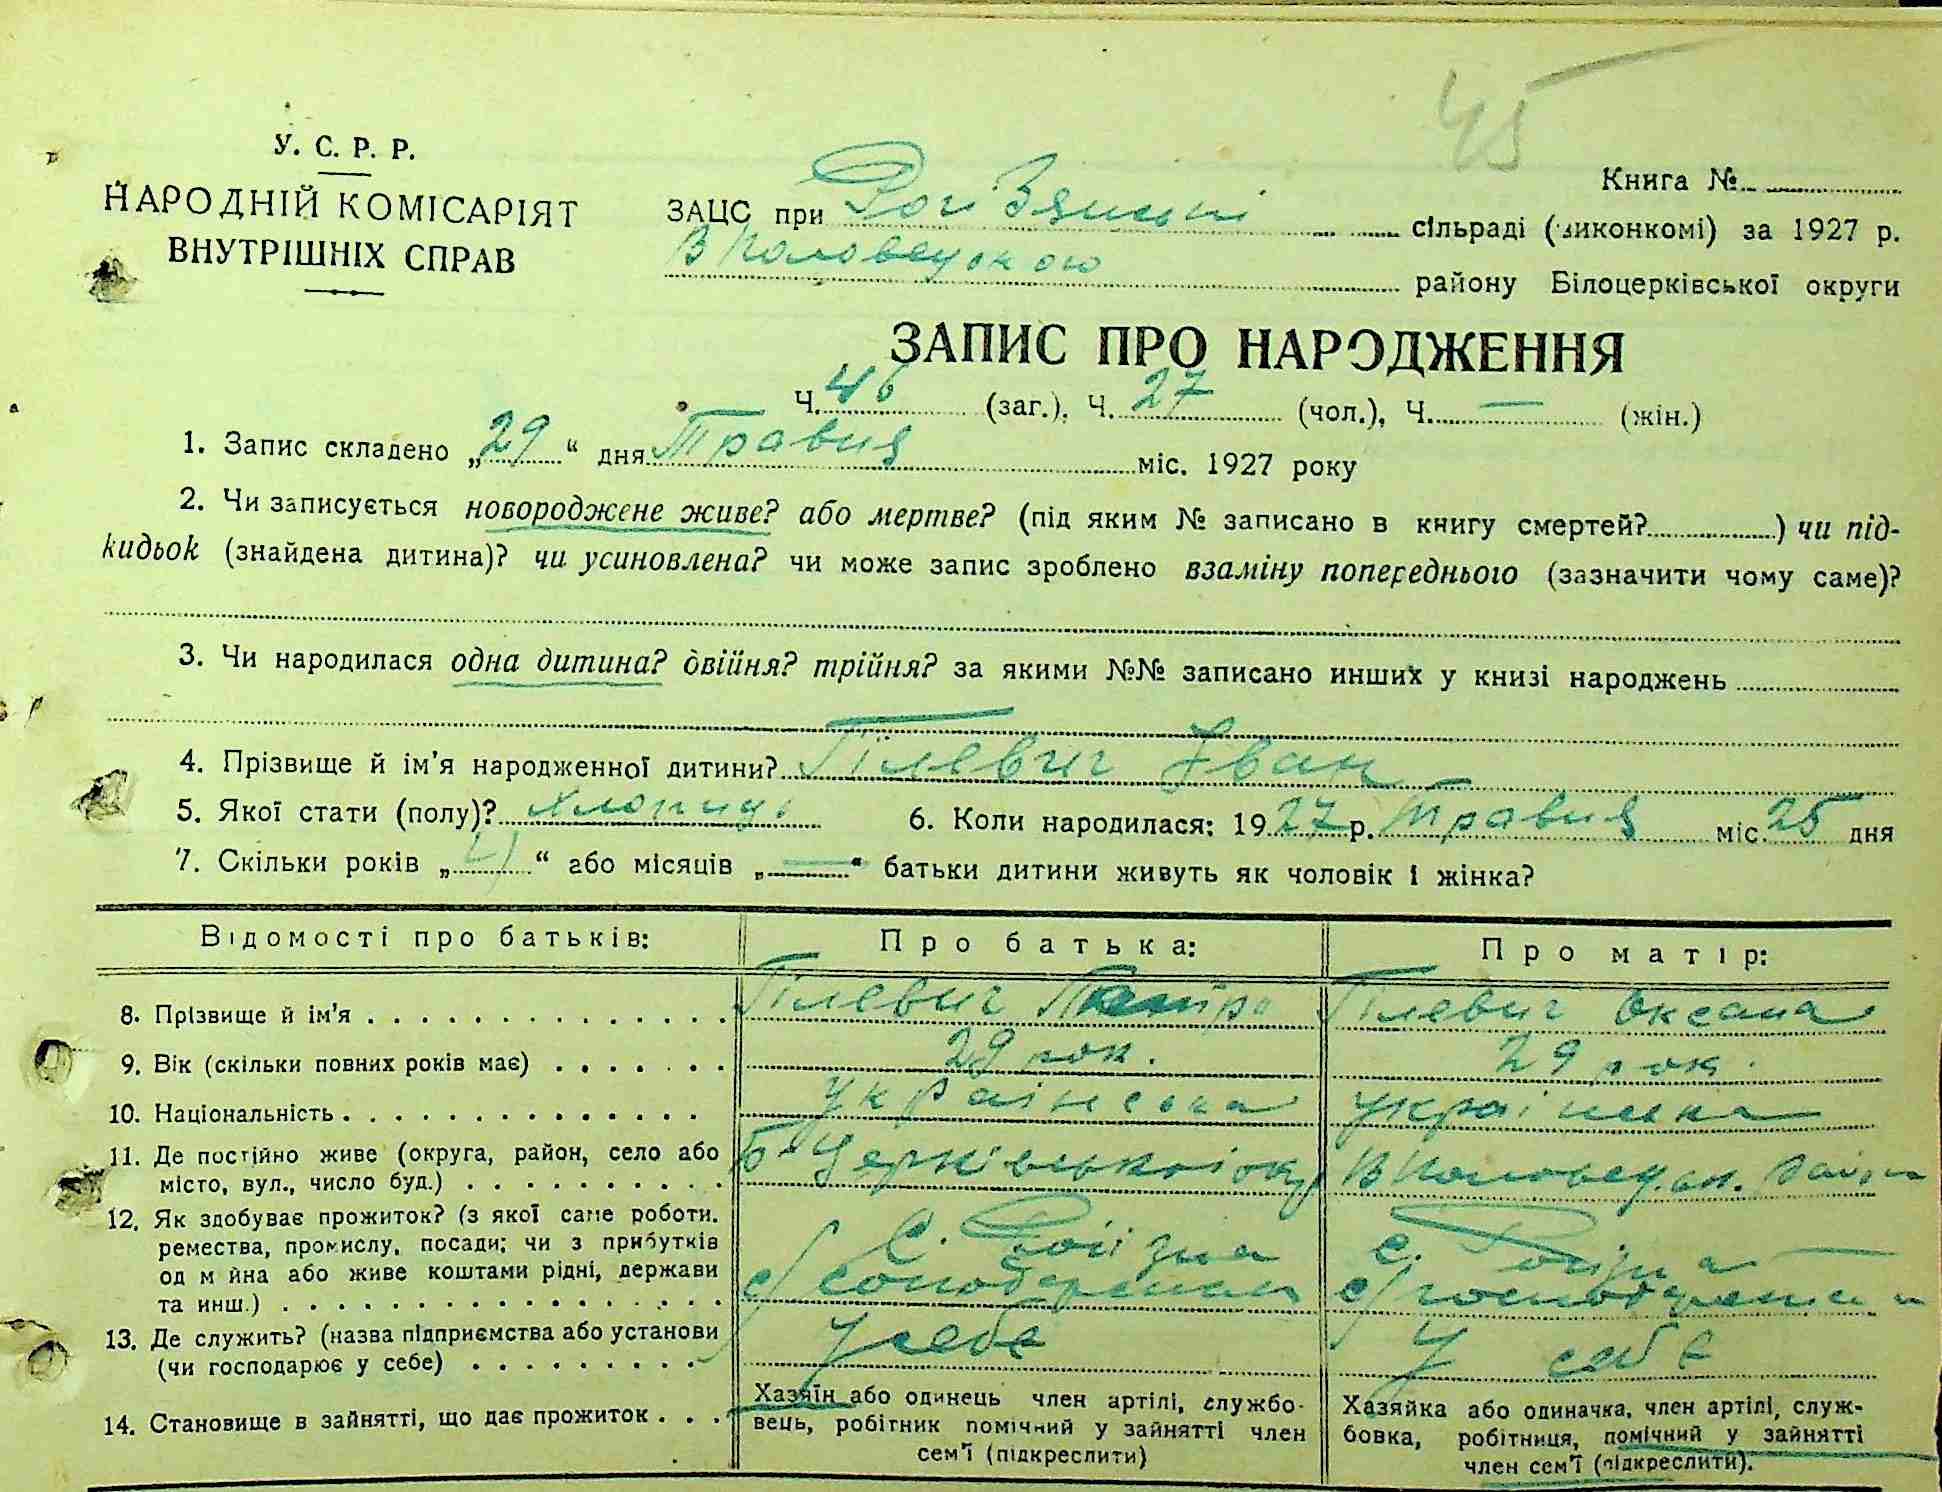 45
У. С. Р. Р.
НАРОДНІЙ КОМІСАРІЯТ
ВНУТРІШНІХ СПРАВ
Книга №
ЗАЦС при сільраді (виконкомі) за 1927 р.
В Половецкою району Білоцерківської округи
ЗАПИС ПРО НАРОДЖЕННЯ
Ч. 46 (заг.), Ч. 27 (чол.), Ч. — (жін.)
1. Запис складено „29“ дня Травня міс. 1927 року
2. Чи записується новороджене живе? або мертве? (під яким № записано в книгу смертей?) чи під-
кидьок (знайдена дитина)? чи усиновлена? чи може запис зроблено взаміну попереднього (зазначити чому саме)?
3. Чи народилася одна дитина? двійня? трійня? за якими №№ записано инших у книзі народжень
4. Прізвище й ім'я народженної дитини? Гілевич Іван
5. Якої стати (полу)? хлопиць 6. Коли народилася: 1927 р. Травня міс. 25 дня
7. Скільки років „“ або місяців „—“ батьки дитини живуть як чоловік і жінка?
Відомості про батьків: Про батька: Про матір:
8. Прізвище й ім'я Гілевич Гілевич Оксана
9. Вік (скільки повних років має) 29 рок. 29 рок.
10. Національність Українська українка
11. Де постійно живе (округа, район, село або
місто, вул., число буд.) Б-Церківської окр В Половец.ск.
12. Як здобуває прожиток? (з якої саме роботи,
ремества, промислу, посади; чи з прибутків С. с.
од м йна або живе коштами рідні, держави
та инш.)
13. Де служить? (назва підприємства або установи
(чи господарює у себе) У себе У себе
14. Становище в зайнятті, що дає прожиток
Хазяїн або одинець член артілі, службо-
вець, робітник помічний у зайнятті член
сем'ї (підкреслити)
Хазяйка або одиначка, член артілі, служ-
бовка, робітниця, помічний у зайнятті
член сем'ї (підкреслити).